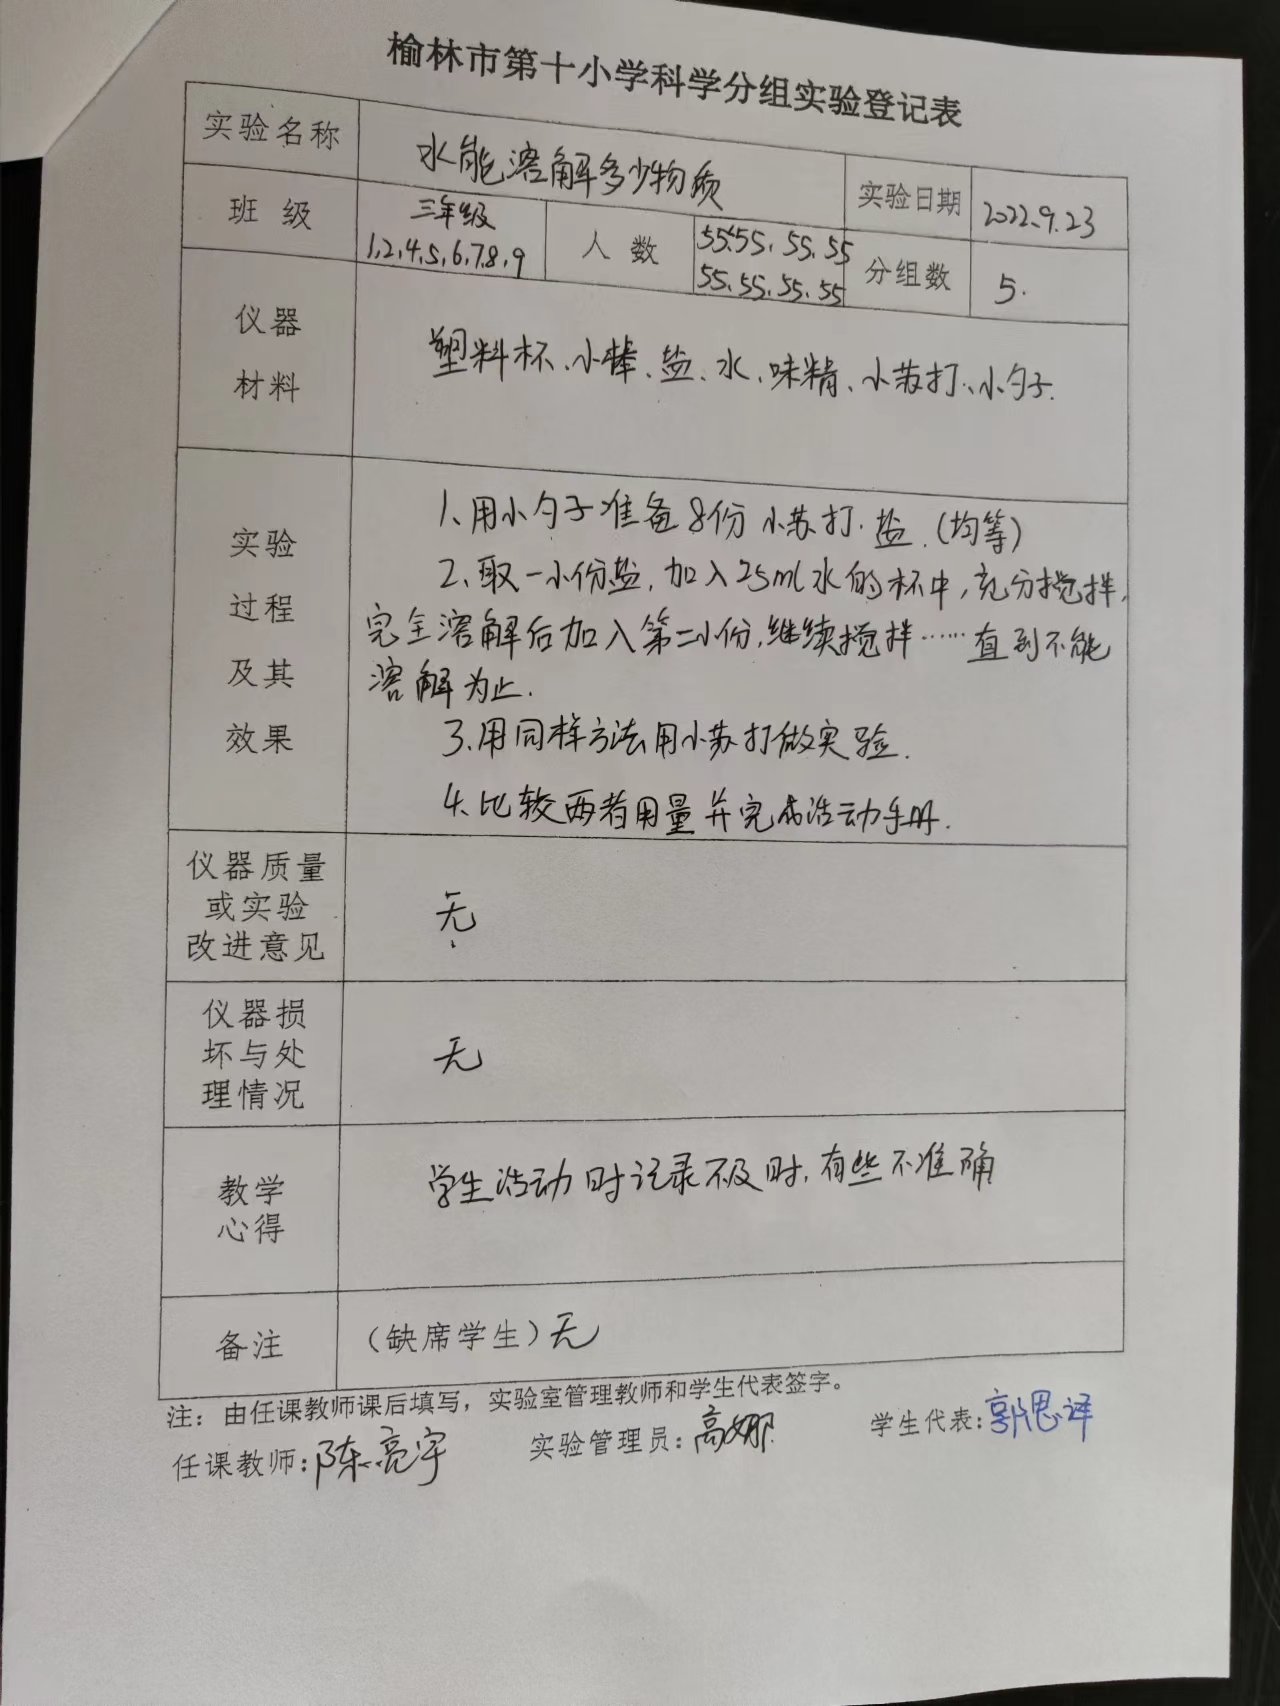 榆林市第十小学科学分组实验登记表
实验名称 水能溶解多少物质 实验日期 2022.9.23
班 级 三年级 1,2,4,5,6,7,8,9 人 数 55、55、55、55 55、55、55、55 分组数 5.
仪器
材料
塑料杯、小棒、盐、水、味精、小苏打、小勺子.
实验
过程
及其
效果
1、用小勺子准备8份小苏打.盐.(均等)
2、取一小份盐,加入25ml水的杯中,充分搅拌,
完全溶解后加入第二小份,继续搅拌……直到不能
溶解为止.
3、用同样方法用小苏打做实验.
4、比较两者用量并完成活动手册.
仪器质量
或实验
改进意见
无
仪器损
坏与处
理情况
无
教学
心得
学生活动时记录不及时,有些不准确
备注 （缺席学生）无
注：由任课教师课后填写，实验室管理教师和学生代表签字。
任课教师：陈亮宇 实验管理员：高娜 学生代表：郭思译